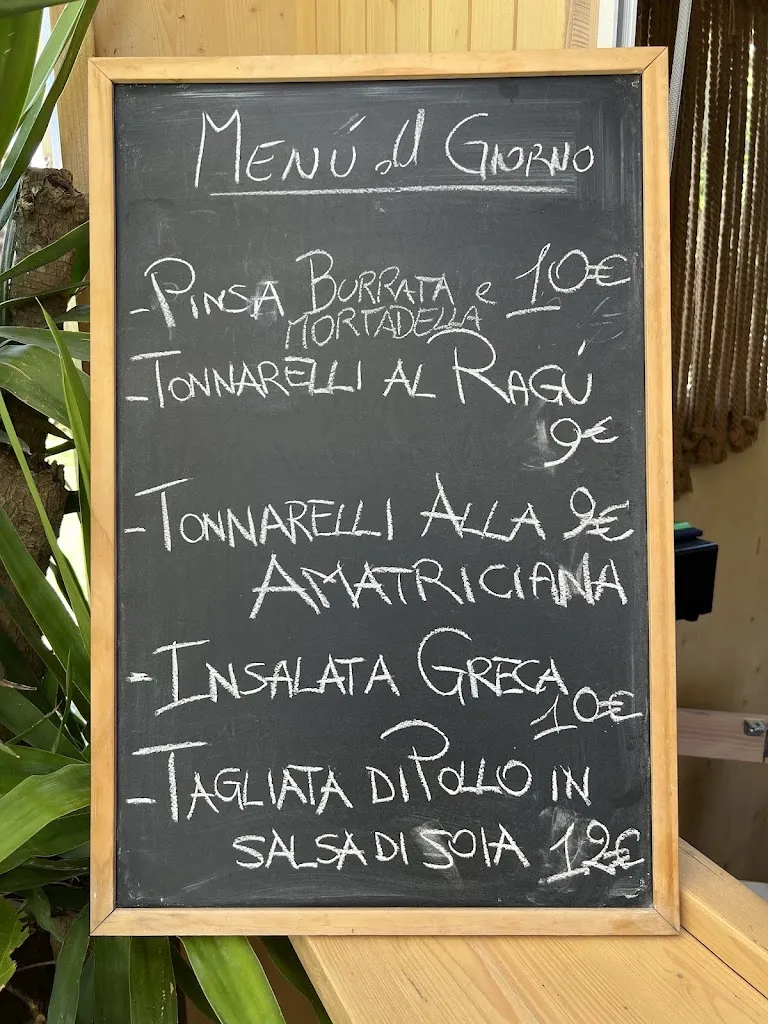 MENÚ del GIORNO
- PINSA BURRATA e 10€
MORTADELLA
- TONNARELLI AL RAGÚ
9€
- TONNARELLI ALLA 9€
AMATRICIANA
- INSALATA GRECA
10€
- TAGLIATA DI POLLO IN
SALSA DI SOIA 12€